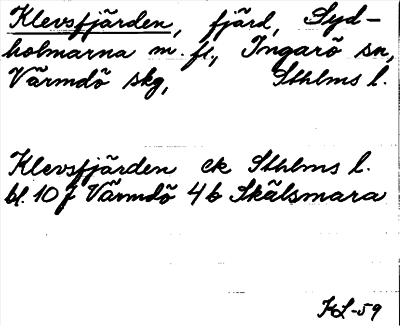 Klevsfjärden, fjärd, Syd-
holmarna m. fl., Ingarö sn,
Värmdö skg, Sthlms l.
Klevsfjärden ek Sthlms l.
bl. 10 f Värmdö 4 b Skälsmara
KL-59